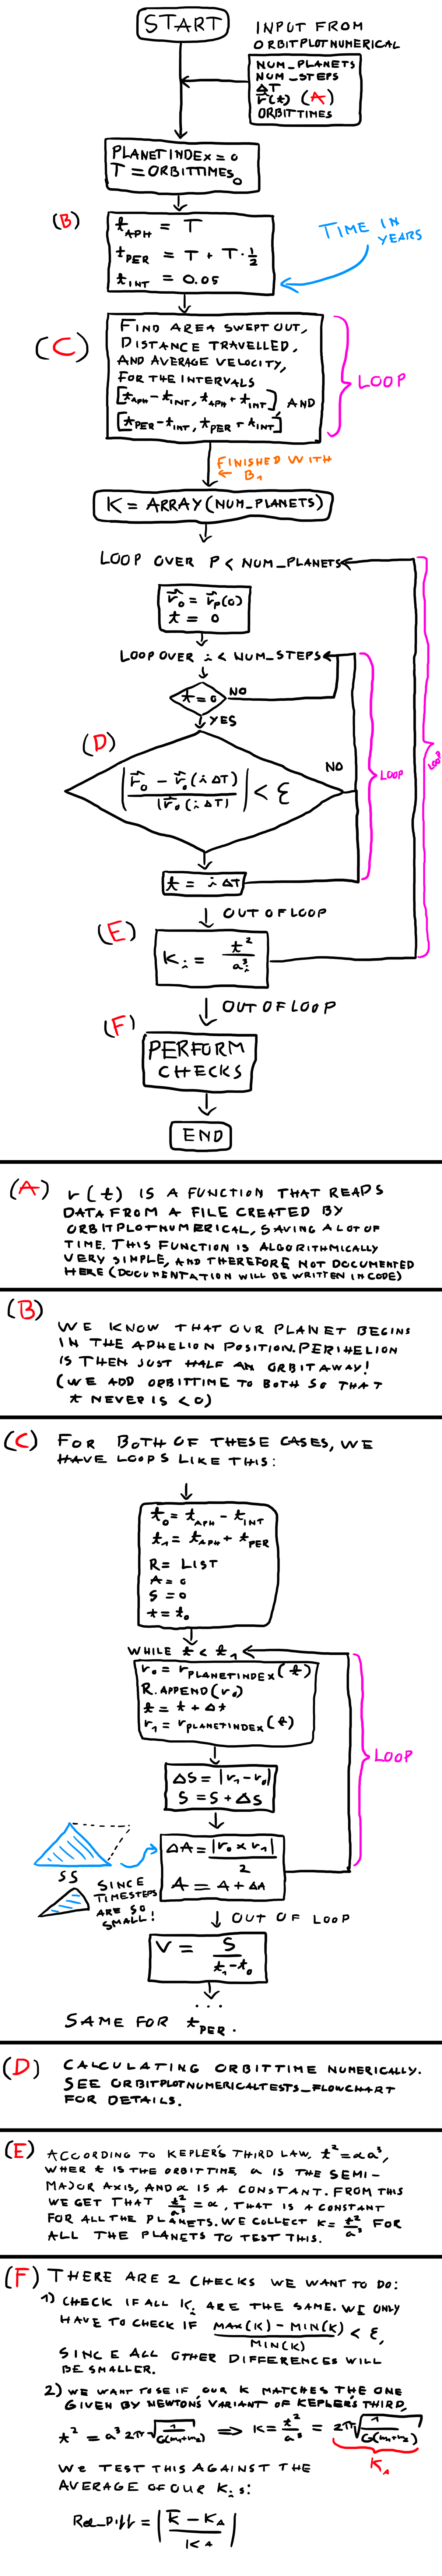 START
INPUT FROM
ORBITPLOTNUMERICAL
NUM_PLANETS
NUM_STEPS
ΔT
r(t) (A)
ORBITTIMES
PLANETINDEX = 0
T = ORBITTIMES₀
(B)
t_APH = T
t_PER = T + T·½
t_INT = 0.05
TIME IN
YEARS
(C)
FIND AREA SWEPT OUT,
DISTANCE TRAVELLED,
AND AVERAGE VELOCITY,
FOR THE INTERVALS
[t_APH - t_INT, t_APH + t_INT], AND
[t_PER - t_INT, t_PER + t_INT]
LOOP
FINISHED WITH
← B.1
K = ARRAY(NUM_PLANETS)
LOOP OVER P < NUM_PLANETS
r⃗₀ = r⃗_P(0)
t = 0
LOOP OVER i < NUM_STEPS
t = 0
NO
YES
(D)
|r⃗₀ - r⃗₀(iΔT) / |r⃗₀(iΔT)|| < ε
NO
LOOP
LOOP
t = iΔT
OUT OF LOOP
(E)
K_i = t²/a_i³
OUT OF LOOP
(F)
PERFORM
CHECKS
END
(A) r(t) IS A FUNCTION THAT READS
DATA FROM A FILE CREATED BY
ORBITPLOTNUMERICAL, SAVING A LOT OF
TIME. THIS FUNCTION IS ALGORITHMICALLY
VERY SIMPLE, AND THEREFORE NOT DOCUMENTED
HERE (DOCUMENTATION WILL BE WRITTEN IN CODE)
(B)
WE KNOW THAT OUR PLANET BEGINS
IN THE APHELION POSITION. PERIHELION
IS THEN JUST HALF AN ORBIT AWAY!
(WE ADD ORBITTIME TO BOTH SO THAT
t NEVER IS < 0)
(C) FOR BOTH OF THESE CASES, WE
HAVE LOOPS LIKE THIS:
t₀ = t_APH - t_INT
t₁ = t_APH + t_PER
R = LIST
A = 0
S = 0
t = t₀
WHILE t < t₁
r₀ = r_PLANETINDEX(t)
R.APPEND(r₀)
t = t + Δt
r₁ = r_PLANETINDEX(t)
LOOP
ΔS = |r₁ - r₀|
S = S + ΔS
ΔA = |r₀ × r₁| / 2
A = A + ΔA
SINCE
TIMESTEPS
ARE SO
SMALL!
OUT OF LOOP
V = S / t₁ - t₀
...
SAME FOR t_PER.
(D) CALCULATING ORBITTIME NUMERICALLY.
SEE ORBITPLOTNUMERICALTESTS_FLOWCHART
FOR DETAILS.
(E) ACCORDING TO KEPLER'S THIRD LAW, t² = αa³,
WHER t IS THE ORBITTIME, a IS THE SEMI-
MAJOR AXIS, AND α IS A CONSTANT. FROM THIS
WE GET THAT t²/a³ = α, THAT IS A CONSTANT
FOR ALL THE PLANETS. WE COLLECT K = t²/a³ FOR
ALL THE PLANETS TO TEST THIS.
(F) THERE ARE 2 CHECKS WE WANT TO DO:
1) CHECK IF ALL K_i ARE THE SAME. WE ONLY
HAVE TO CHECK IF MAX(K) - MIN(K) / MIN(K) < ε,
SINCE ALL OTHER DIFFERENCES WILL
BE SMALLER.
2) WE WANT TO SE IF OUR K MATCHES THE ONE
GIVEN BY NEWTON'S VARIANT OF KEPLER'S THIRD,
t² = a³ 2π√(1/G(m₁+m₂)) ⇒ K = t²/a³ = 2π√(1/G(m₁+m₂))
K_A
WE TEST THIS AGAINST THE
AVERAGE OF OUR K_i s:
Rel_Diff = |K̄ - K_A / K_A|